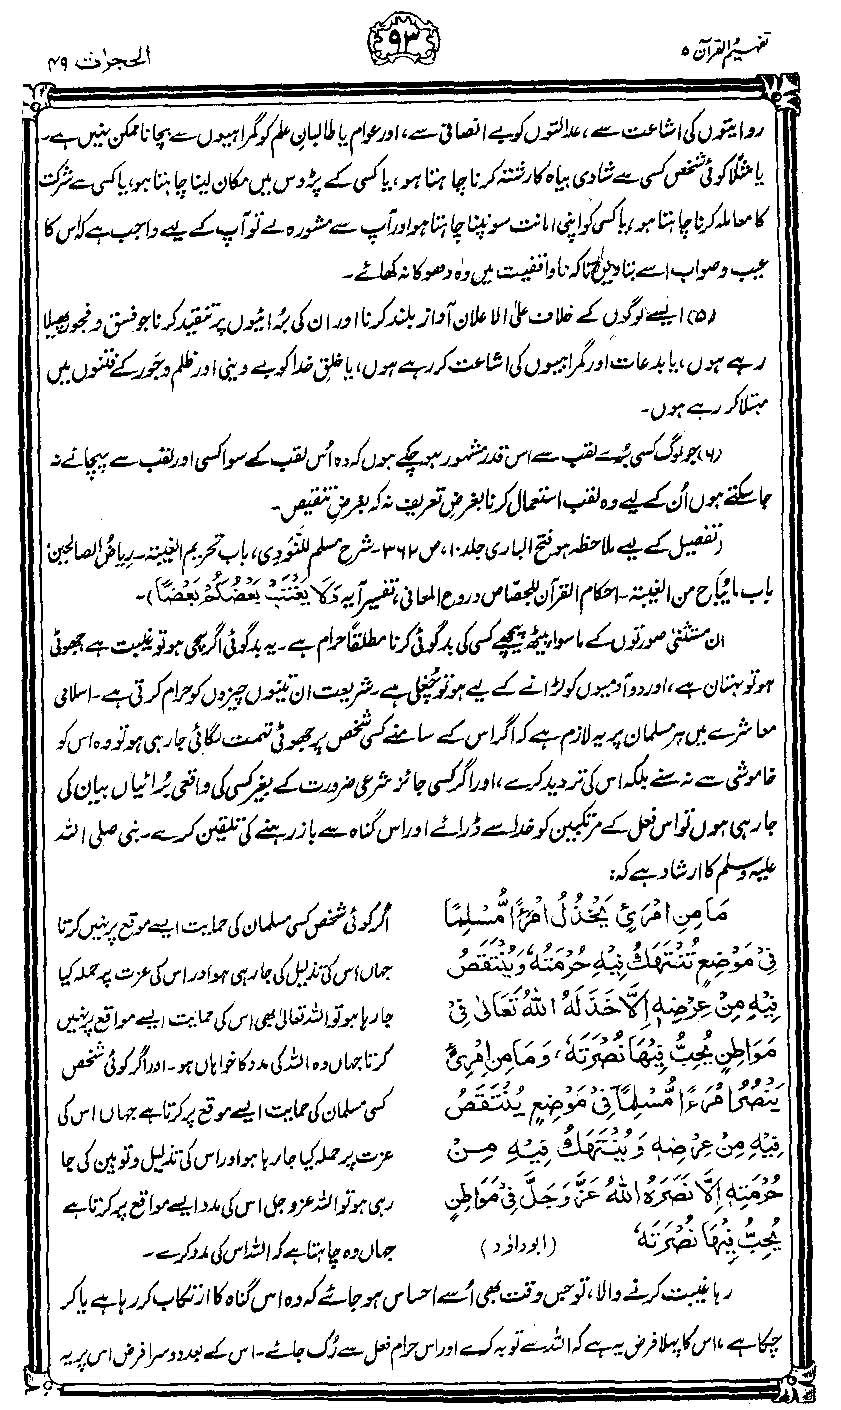 تفہیم القرآن ۵
۹۳
الحجرات ۴۹
روایتوں کی اشاعت سے، عدالتوں کو بے انصافی سے، اور عوام یا طالبانِ علم کو گمراہیوں سے بچانا ممکن نہیں ہے۔
یا مثلاً کوئی شخص کسی سے شادی بیاہ کا رشتہ کرنا چاہتا ہو، یا کسی کے پڑوس میں مکان لینا چاہتا ہو، یا کسی سے شرکت
کا معاملہ کرنا چاہتا ہو، یا کسی کو اپنی امانت سونپنا چاہتا ہو اور آپ سے مشورہ لے تو آپ کے لیے واجب ہے کہ اس کا
عیب و صواب اسے بتا دیں تاکہ ناواقفیت میں وہ دھوکا نہ کھائے۔
(۵) ایسے لوگوں کے خلاف علی الاعلان آواز بلند کرنا اور ان کی برائیوں پر تنقید کرنا جو فسق و فجور پھیلا
رہے ہوں، یا بدعات اور گمراہیوں کی اشاعت کر رہے ہوں، یا خلقِ خدا کو بے دینی اور ظلم و جَور کے فتنوں میں
مبتلا کر رہے ہوں۔
(۶) جو لوگ کسی بُرے لقب سے اس قدر مشہور ہو چکے ہوں کہ وہ اُس لقب کے سوا کسی اور لقب سے پہچانے نہ
جا سکتے ہوں اُن کے لیے وہ لقب استعمال کرنا بغرضِ تعریف نہ کہ بغرضِ تنقیص۔
(تفصیل کے لیے ملاحظہ ہو فتح الباری جلد ۱۰، ص ۳۶۲۔ شرح مسلم للنَّوَوِی، باب تحریم الغیبۃ۔ ریاض الصالحین،
باب مایُباح من الغیبۃ۔ احکام القرآن للجصّاص۔ روح المعانی، تفسیر آیہ وَلَا یَغْتَبْ بَعْضُكُمْ بَعْضًا)۔
ان مستثنیٰ صورتوں کے ماسوا پیٹھ پیچھے کسی کی بدگوئی کرنا مطلقاً حرام ہے۔ یہ بدگوئی اگر سچی ہو تو غیبت ہے، جھوٹی
ہو تو بہتان ہے، اور دو آدمیوں کو لڑانے کے لیے ہو تو چُغلی ہے۔ شریعت ان تینوں چیزوں کو حرام کرتی ہے۔ اسلامی
معاشرے میں ہر مسلمان پر یہ لازم ہے کہ اگر اس کے سامنے کسی شخص پر جھوٹی تہمت لگائی جا رہی ہو تو وہ اس کو
خاموشی سے نہ سنے بلکہ اس کی تردید کرے، اور اگر کسی جائز شرعی ضرورت کے بغیر کسی کی واقعی بُرائیاں بیان کی
جا رہی ہوں تو اس فعل کے مرتکبین کو خدا سے ڈرائے اور اس گناہ سے باز رہنے کی تلقین کرے۔ نبی صلی اللہ
علیہ وسلم کا ارشاد ہے کہ:
مَا مِنِ امْرَئٍ یَخْذُلُ امْرَأً مُّسْلِمًا
فِیْ مَوْضِعٍ تُنْتَهَكُ فِیْهِ حُرْمَتُهٗ وَیُنْتَقَصُ
فِیْهِ مِنْ عِرْضِهٖ اِلَّا خَذَلَهُ اللّٰهُ تَعَالٰی فِیْ
مَوَاطِنَ یُحِبُّ فِیْهَا نُصْرَتَهٗ، وَمَا مِنِ امْرِئٍ
یَنْصُرُ امْرَءًا مُّسْلِمًا فِیْ مَوْضِعٍ یُنْتَقَصُ
فِیْهِ مِنْ عِرْضِهٖ وَیُنْتَهَكُ فِیْهِ مِنْ
حُرْمَتِهٖ اِلَّا نَصَرَهُ اللّٰهُ عَزَّ وَجَلَّ فِیْ مَوَاطِنَ
یُحِبُّ فِیْهَا نُصْرَتَهٗ (ابوداؤد)
اگر کوئی شخص کسی مسلمان کی حمایت ایسے موقع پر نہیں کرتا
جہاں اس کی تذلیل کی جا رہی ہو اور اس کی عزت پر حملہ کیا
جا رہا ہو تو اللہ تعالیٰ بھی اس کی حمایت ایسے مواقع پر نہیں
کرتا جہاں وہ اللہ کی مدد کا خواہاں ہو۔ اور اگر کوئی شخص
کسی مسلمان کی حمایت ایسے موقع پر کرتا ہے جہاں اس کی
عزت پر حملہ کیا جا رہا ہو اور اس کی تذلیل و توہین کی جا
رہی ہو تو اللہ عز وجل اس کی مدد ایسے مواقع پر کرتا ہے
جہاں وہ چاہتا ہے کہ اللہ اس کی مدد کرے۔
رہا غیبت کرنے والا، تو جس وقت بھی اُسے احساس ہو جائے کہ وہ اس گناہ کا ارتکاب کر رہا ہے یا کر
چکا ہے، اس کا پہلا فرض یہ ہے کہ اللہ سے توبہ کرے اور اس حرام فعل سے رُک جائے۔ اس کے بعد دوسرا فرض اس پر یہ